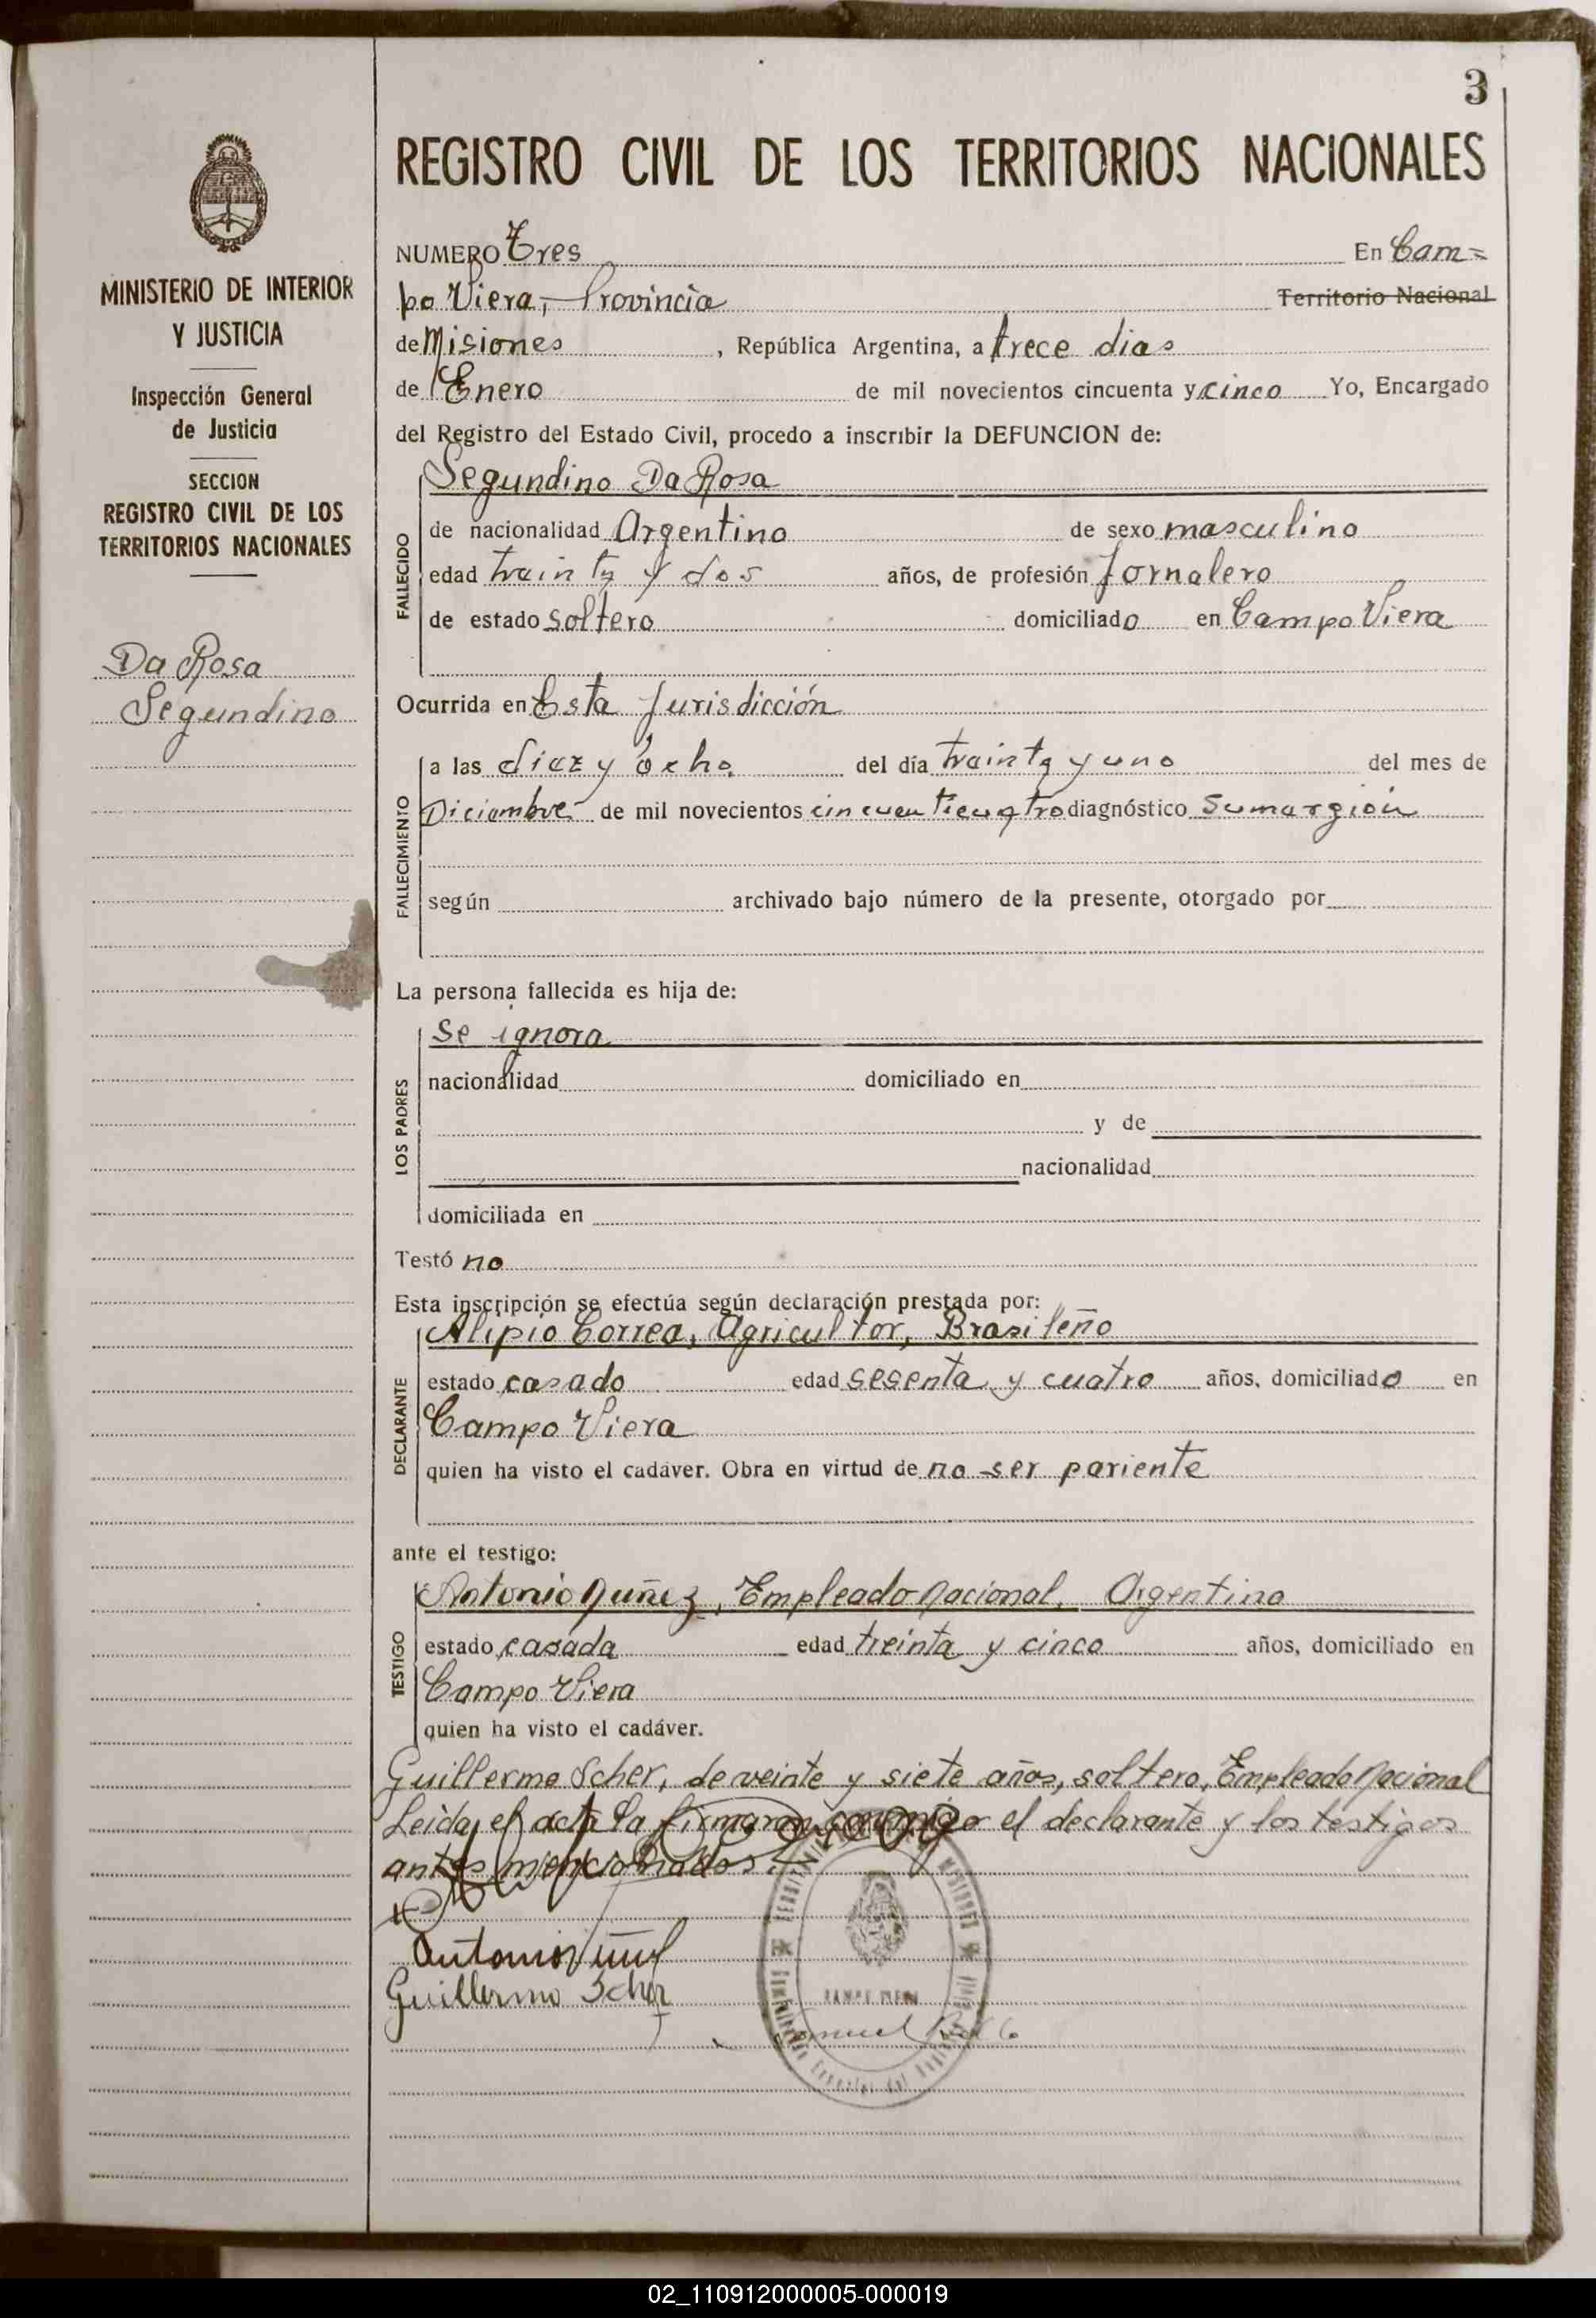 3
REGISTRO CIVIL DE LOS TERRITORIOS NACIONALES
MINISTERIO DE INTERIOR
Y JUSTICIA
Inspección General
de Justicia
SECCION
REGISTRO CIVIL DE LOS
TERRITORIOS NACIONALES
Da Rosa
Segundino
NUMERO Tres En Cam=
po Viera, Provincia Territorio Nacional
de Misiones, República Argentina, a trece dias
de Enero de mil novecientos cincuenta y cinco Yo, Encargado
del Registro del Estado Civil, procedo a inscribir la DEFUNCION de:
Segundino Da Rosa
FALLECIDO
de nacionalidad Argentino de sexo masculino
edad trainta y dos años, de profesión Jornalero
de estado soltero domiciliado en Campo Viera
Ocurrida en Esta Jurisdicción
FALLECIMIENTO
a las diez y ocho del día trainta y uno del mes de
Diciembre de mil novecientos cincuenticuatro diagnóstico Sumargión
según archivado bajo número de la presente, otorgado por
La persona fallecida es hija de:
LOS PADRES
Se ignora
nacionalidad domiciliado en
y de
nacionalidad
domiciliada en
Testó no
Esta inscripción se efectúa según declaración prestada por:
DECLARANTE
Alipio Correa, Agricultor, Brasileño
estado casado edad sesenta y cuatro años, domiciliado en
Campo Viera
quien ha visto el cadáver. Obra en virtud de no ser pariente
ante el testigo:
TESTIGO
Antonio Nuñez, Empleado Nacional, Argentino
estado casada edad treinta y cinco años, domiciliado en
Campo Viera
quien ha visto el cadáver.
Guillermo Scher, de veinte y siete años, soltero, Empleado Nacional
Leida el acta la firmaran conmigo el declarante y los testigos
antes mencionados.
Antonio Nuñez
Guillermo Scher
CAMPO VIERA
02_110912000005-000019